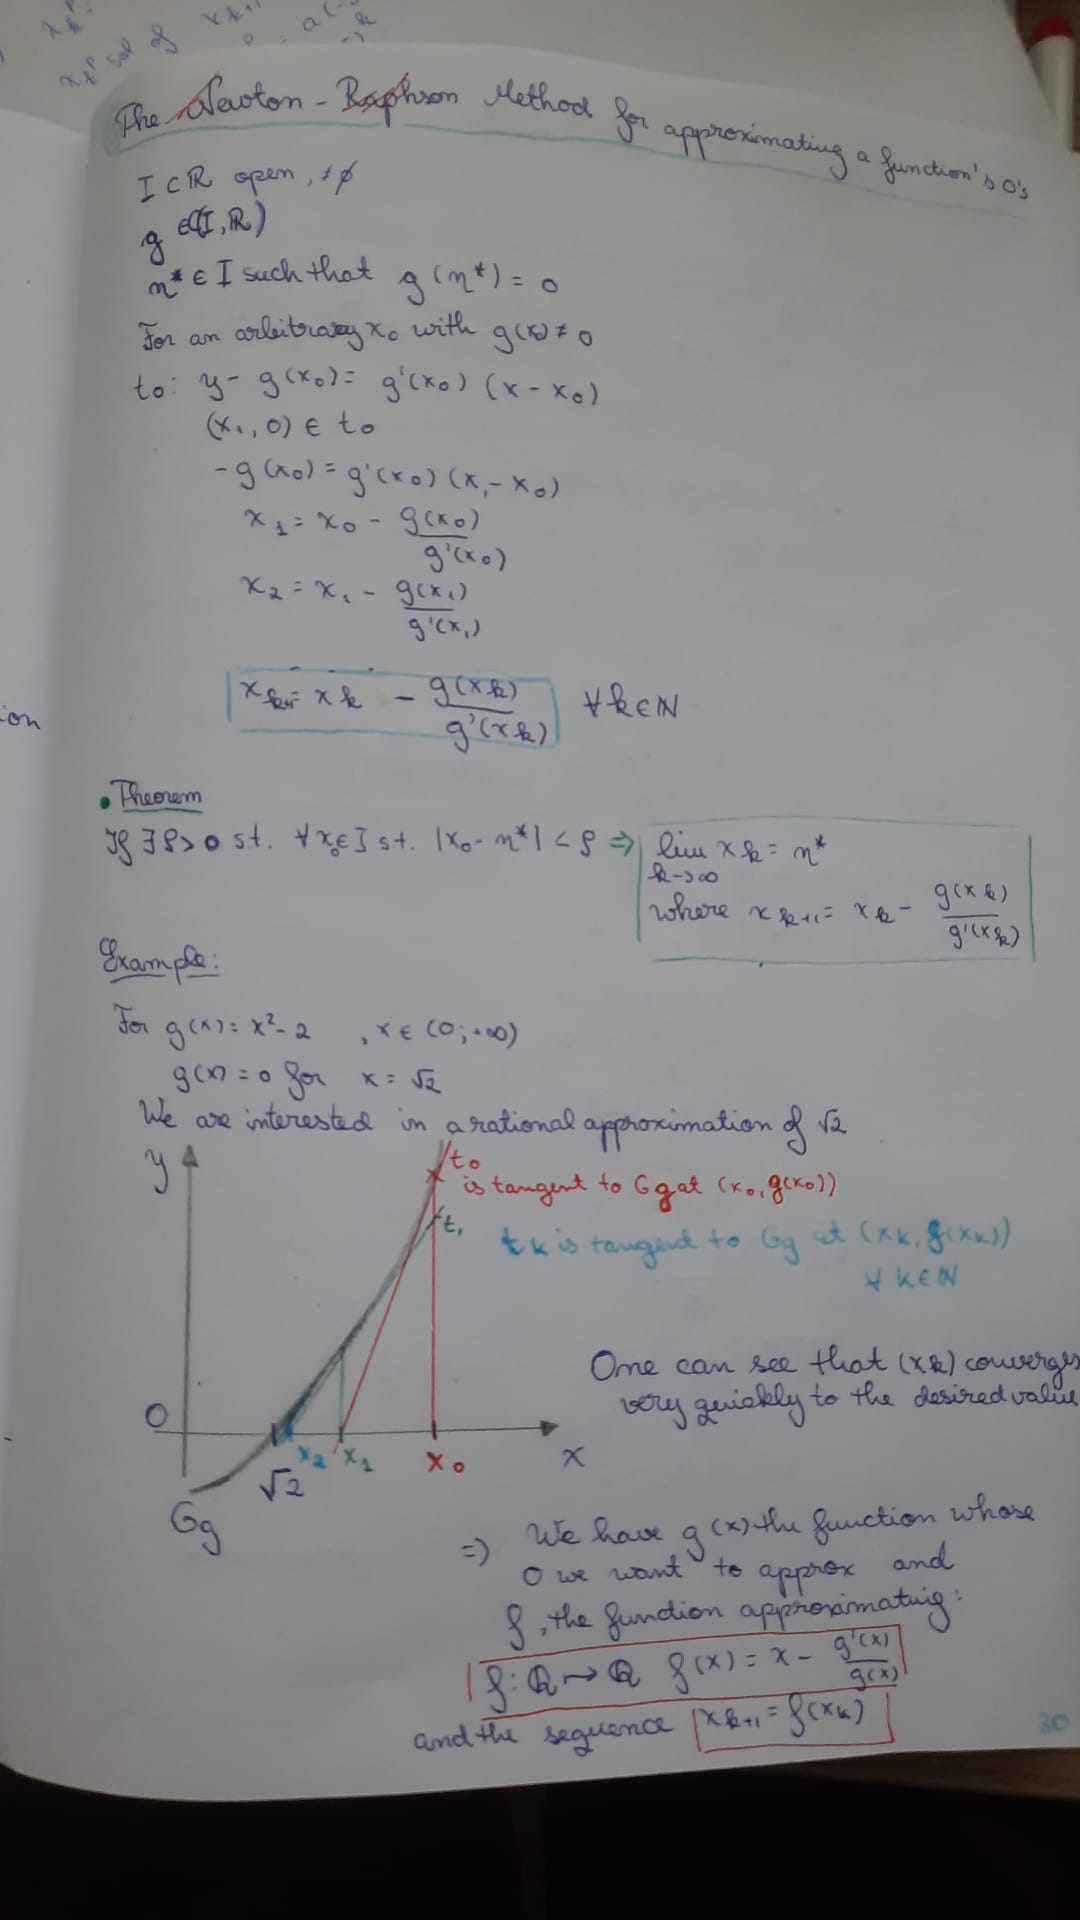 The Newton - Raphson Method for approximating a function's 0's
I ⊂ ℝ open, ≠ ∅
g ∈ C(I, ℝ)
η* ∈ I such that g(η*) = 0
For an arbitrary x₀ with g(x) ≠ 0
to: y - g(x₀) = g'(x₀) (x - x₀)
(x₁, 0) ∈ to
-g(x₀) = g'(x₀) (x₁ - x₀)
x₁ = x₀ - g(x₀)/g'(x₀)
x₂ = x₁ - g(x₁)/g'(x₁)
xₖ₊₁ = xₖ - g(xₖ)/g'(xₖ) ∀ k ∈ ℕ
ion
• Theorem
If ∃ ρ > 0 st. ∀ x₀ ∈ I st. |x₀ - η*| < ρ ⇒ lim xₖ = η*
k→∞
where xₖ₊₁ = xₖ - g(xₖ)/g'(xₖ)
Example:
For g(x) = x² - 2 , x ∈ (0; +∞)
g(x) = 0 for x = √2
We are interested in a rational approximation of √2
y
to
is tangent to Gg at (x₀, g(x₀))
t₁
tk is tangent to Gg at (xₖ, g(xₖ))
∀ k ∈ ℕ
One can see that (xₖ) converges
very quickly to the desired value
O
√2 x₂ x₁ x₀ x
Gg
=) We have g(x) the function whose
0 we want to approx and
f, the function approximating:
f: ℚ → ℚ f(x) = x - g'(x)/g(x)
and the sequence xₖ₊₁ = f(xₖ)
30